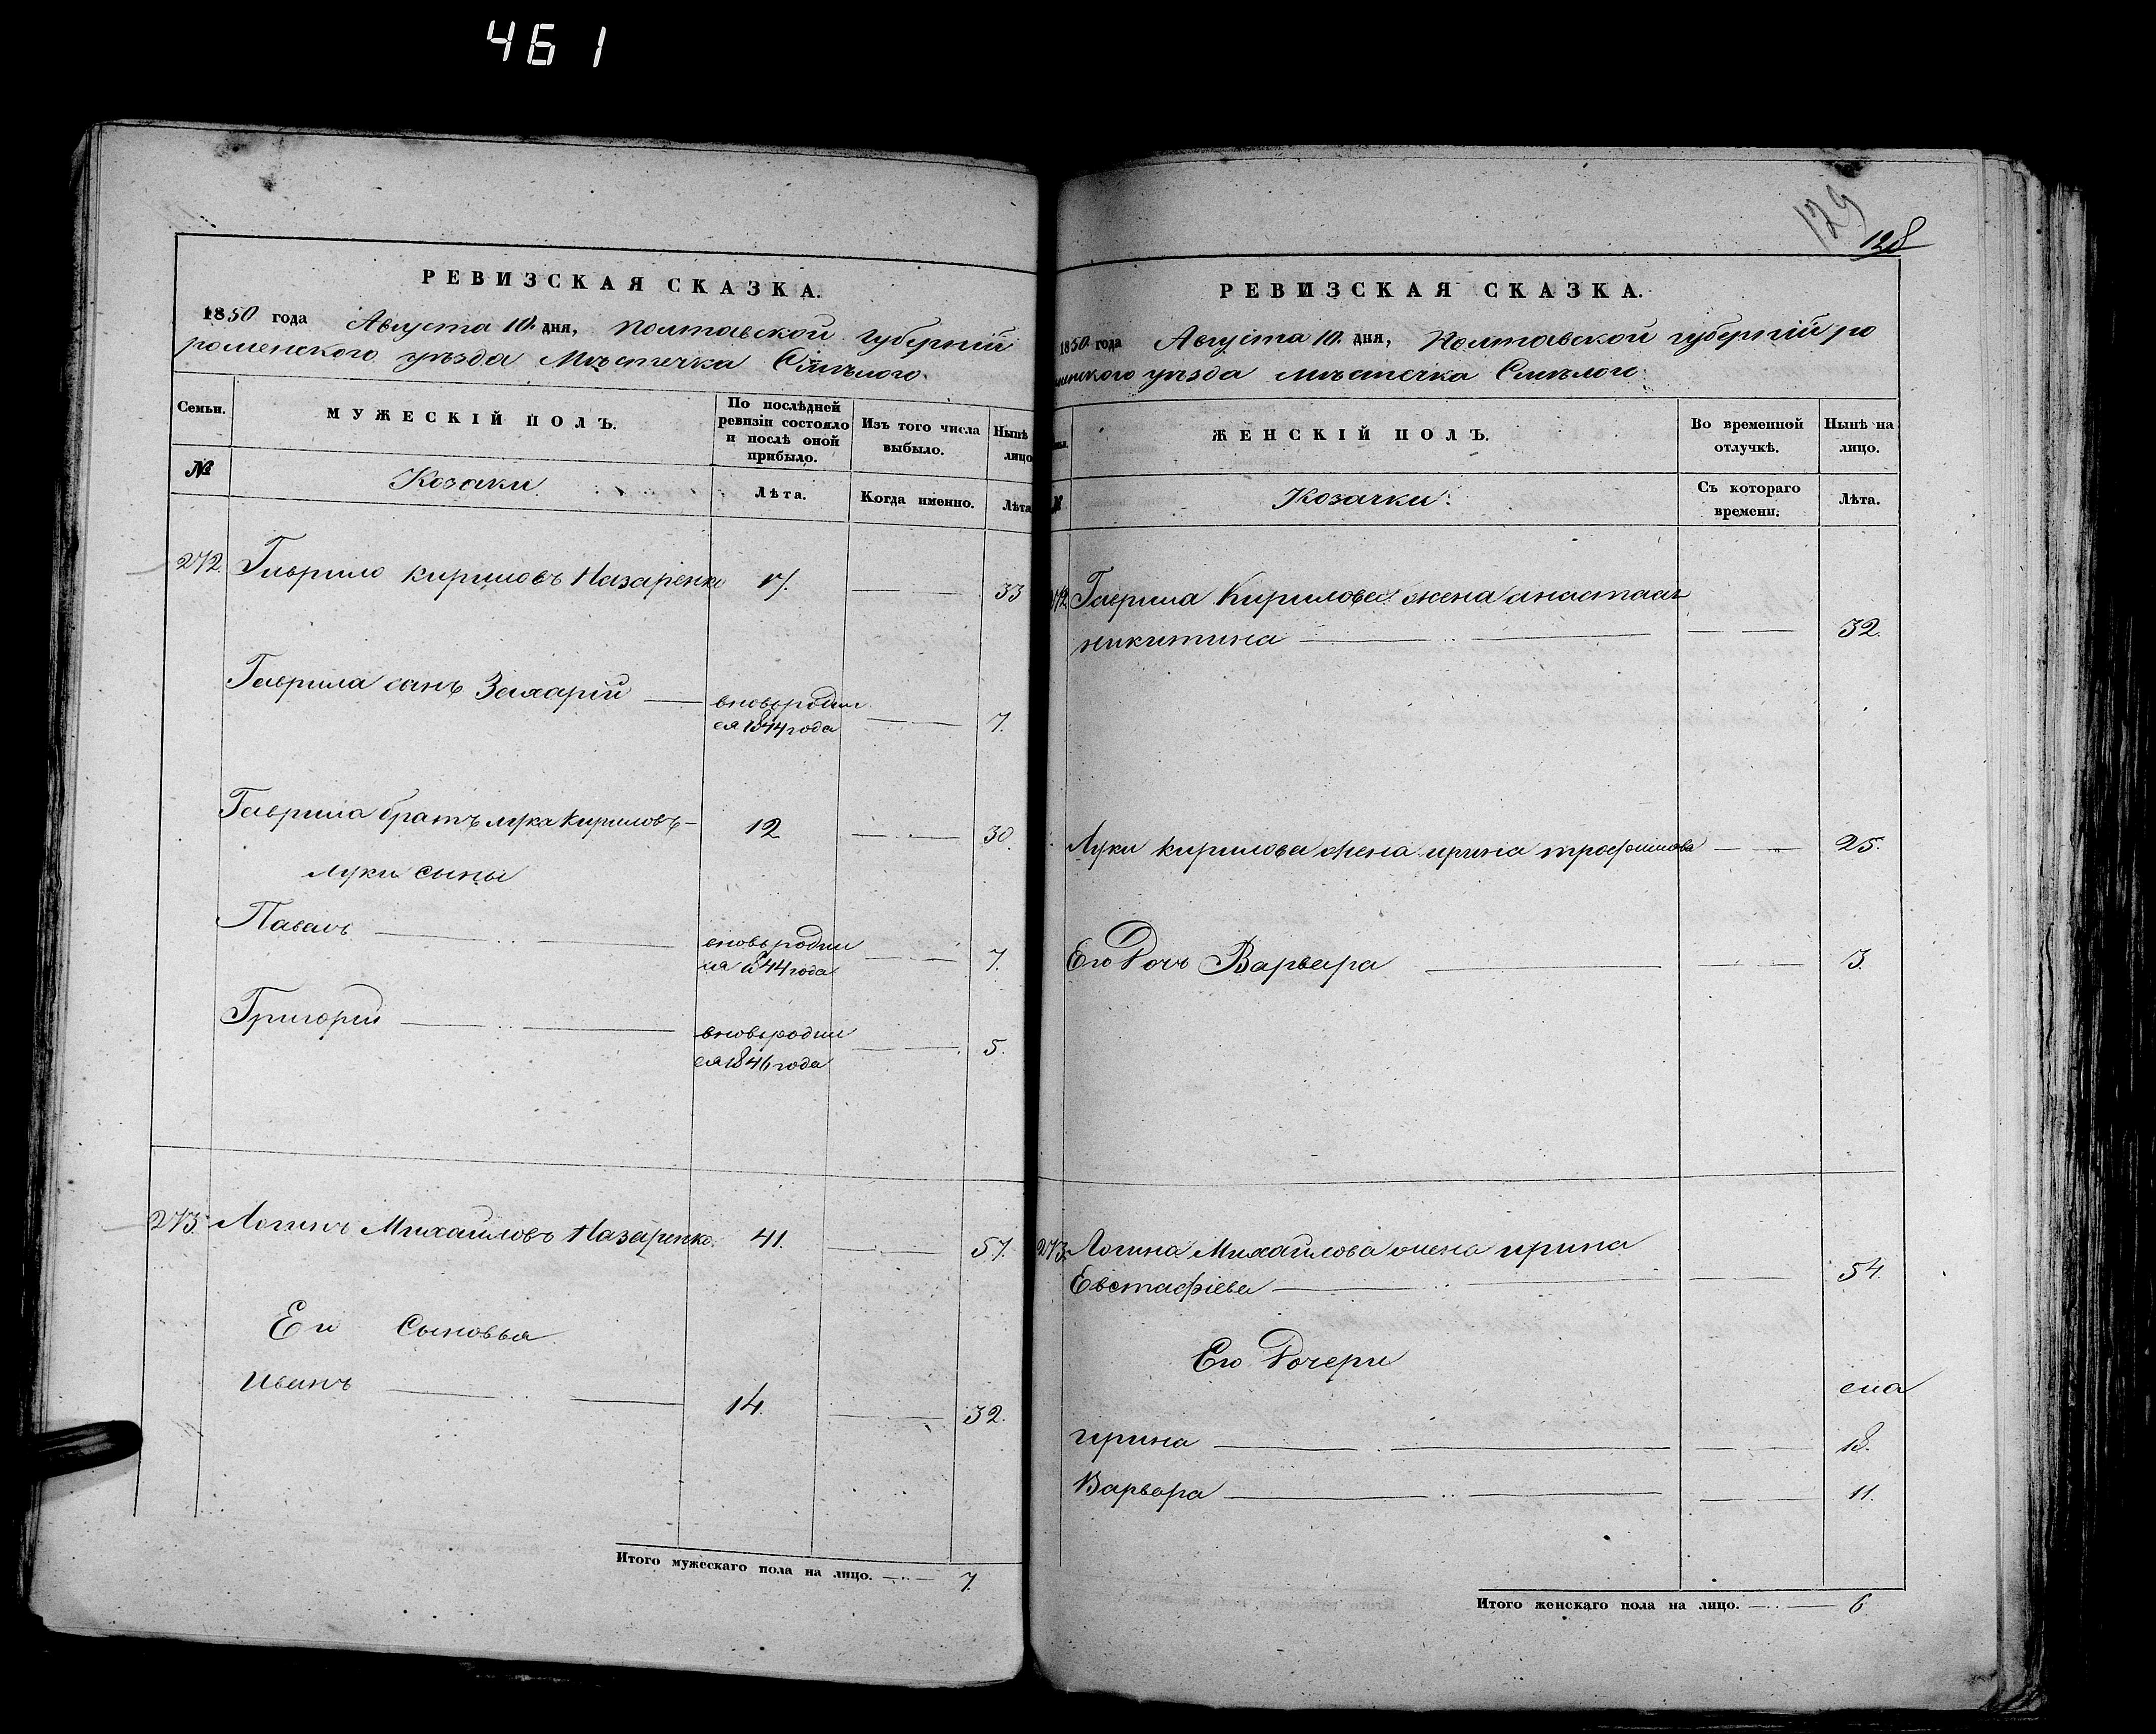 461
РЕВИЗСКАЯ СКАЗКА.
1850 года Августа 10. дня, Полтавской губерніи
роменского уѣзда Мѣстечка Смѣлого.
Семьи.
МУЖЕСКІЙ ПОЛЪ.
По послѣдней
ревизіи состояло
и послѣ оной
прибыло.
Изъ того числа
выбыло.
Нынѣ
лицо
№
Козаки.
Лѣта.
Когда именно.
Лѣта
272. Гаврило кириловъ Назаренко 17. 33
Гаврила сынъ Захарій вновь родил
ся 1844 года 7.
Гаврила братъ лука Кириловъ 12 30.
Луки сыны
Павелъ вновь родил
ся 1844 года 7.
Григорій вновь родил
ся 1846 года 5.
273. Логинъ Михайловъ Назаренко. 41. 57.
Его Сыновья
Иванъ 14. 32.
Итого мужескаго пола на лицо. 7.
129
128
РЕВИЗСКАЯ СКАЗКА.
1850 года Августа 10. дня, Полтавской губерній ро
менского уѣзда мѣстечка Смѣлого.
ЖЕНСКІЙ ПОЛЪ.
Во временной
отлучкѣ.
Нынѣ на
лицо.
№
Козачки.
Съ котораго
времени.
Лѣта.
272 Гаврила Кирилова жена анастасія
никитина 32.
Луки кирилова жена ирина трофимова 25.
Его Дочь Варвара 3.
273. Логина Михайлова жена ирина
Евстафіева 54.
Его Дочери
ирина 18.
Варвара 11.
Итого женскаго пола на лицо. 6